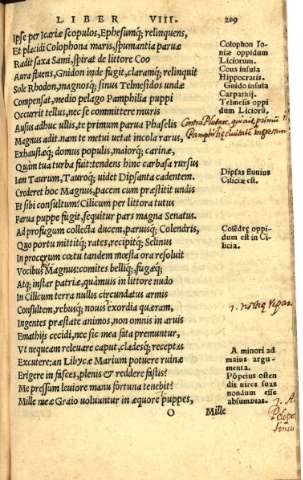 LIBER VIII. 209
Ipse per Icariæ scopulos, Ephesumq; relinquens,
Et placidi Colophona maris, spumantia paruæ
Radit saxa Sami, spirat de littore Coo
Aura fluens, Gnidon inde fugit, claramq; relinquit
Sole Rhodon, magnosq; sinus Telmessidos undæ
Compensat, medio pelago Pamphilia puppi
Occurrit tellus, nec se committere muris
Ausus adhuc ullis, te primum parua Phaselis
Magnus adit. nam te metui uetat incola rarus,
Exhaustæq; domus populis, maiorq; carinæ,
Quàm tua turba fuit: tendens hinc carbasa rursus
Iam Taurum, Tauroq; uidet Dipsanta cadentem.
Crederet hoc Magnus, pacem cum præstitit undis
Et sibi consultum? Cilicum per littora tutus
Parua puppe fugit, sequitur pars magna Senatus.
Ad profugum collecta ducem, paruisq; Celendris,
Quo portu mittitq; rates, recipitq; Selinus
In procerum cœtu tandem mœsta ora resoluit
Vocibus Magnus: comites belliq; fugæq;
Atq; instar patriæ, quamuis in littore nudo
In Cilicum terra nullis circundatus armis
Consultem, rebusq; nouis exordia quæram,
Ingentes præstate animos, non omnis in aruis
Emathijs cecidi, nec sic mea fata premuntur,
Vt nequeam releuare caput, cladesq; receptas
Excutere: an Libycæ Marium potuere ruinæ
Erigere in fasces, plenis & reddere fastis?
Me pressum leuiore manu fortuna tenebit?
Mille meæ Graio uoluuntur in æquore puppes,
O Mille
Colophon Io-
niæ oppidum
Liciorum.
Cous insula
Hippocratis.
Gnido insula
Carpathij.
Telmesis oppi
dum Liciorum.
Dipsas fluuius
Ciliciæ est.
Coledræ oppi-
dum est in Ci-
licia.
A minori ad
maius argu-
menta.
Pōpeius osten
dit uires suas
nondum esse
absumptas.